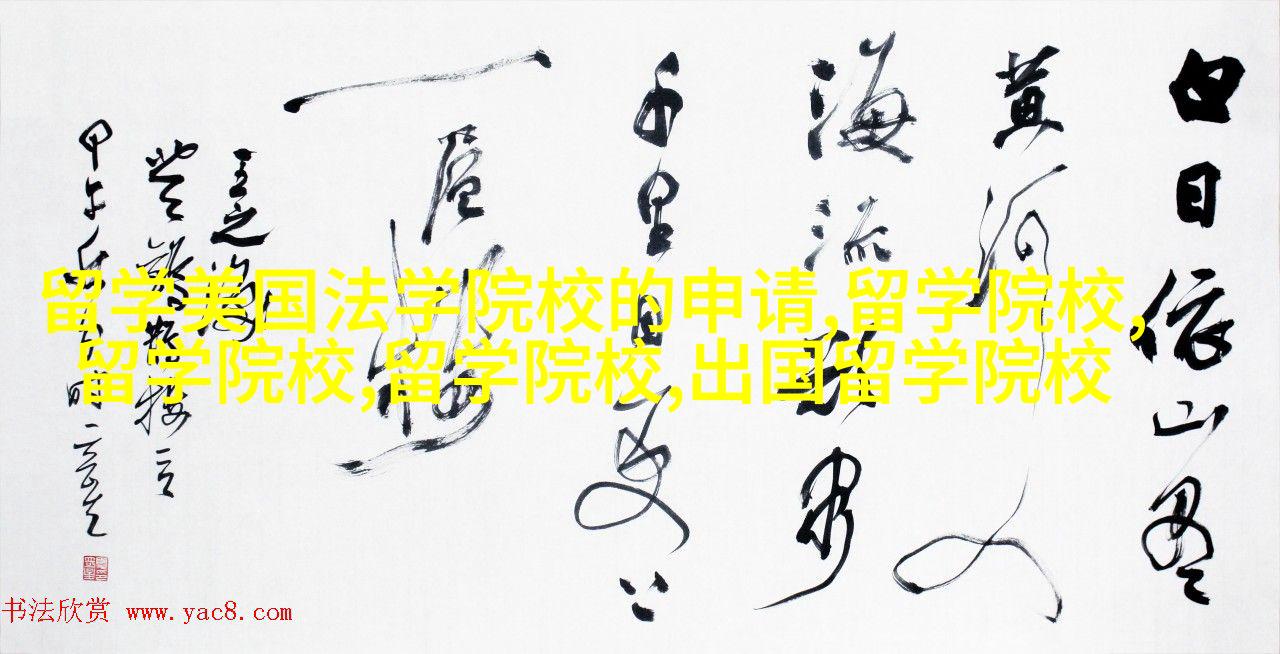 白日依山尽
黄河入
海流欲穷
千里目更上
一层楼
王之涣
甲午
留学美国法学院校的申请,留学院校,
留学院校,留学院校,出国留学院校
书法欣赏 www.yac8.com